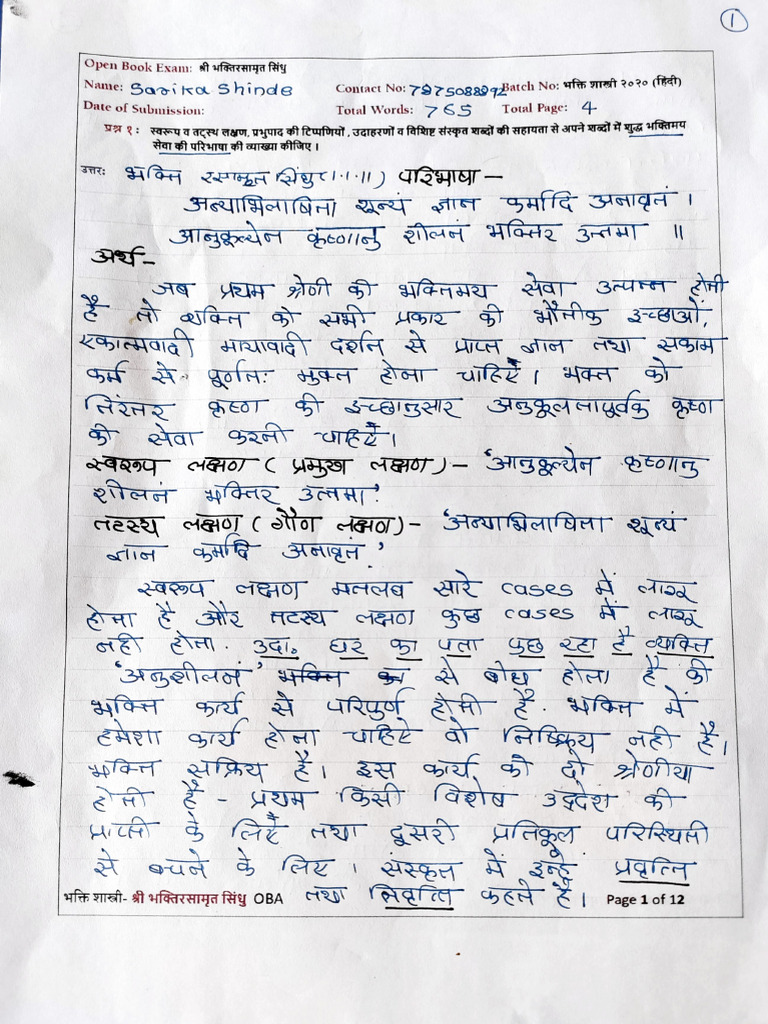 1
Open Book Exam: श्री भक्तिरसामृत सिंधु
Name: Sarika Shinde Contact No: 7975088292 Batch No: भक्ति शास्त्री २०२० (हिंदी)
Date of Submission: Total Words: 765 Total Page: 4
प्रश्न १: स्वरूप व तट्स्थ लक्षण, प्रभुपाद की टिप्पणियों, उदाहरणों व विशिष्ट संस्कृत शब्दों की सहायता से अपने शब्दों में शुद्ध भक्तिमय
सेवा की परिभाषा की व्याख्या कीजिए।
उत्तरः भक्ति रसामृत सिंधु (१.१.११) परिभाषा –
अन्याभिलाषिता शून्यं ज्ञान कर्मादि अनावृतं।
आनुकूल्येन कृष्णानु शीलनं भक्तिर उत्तमा ॥
अर्थ-
जब प्रथम श्रेणी की भक्तिमय सेवा उत्पन्न होती
है तो व्यक्ति को सभी प्रकार की भौतीक इच्छाओं,
एकात्मवादी मायावादी दर्शन से प्राप्त ज्ञान तथा सकाम
कर्म से पूर्णतः मुक्त होना चाहिऐ। भक्त को
निरंतर कृष्ण की इच्छानुसार अनुकूलतापूर्वक कृष्ण
की सेवा करनी चाहिऐ।
स्वरूप लक्षण (प्रमुख लक्षण)- 'आनुकूल्येन कृष्णानु
शीलनं भक्तिर उत्तमा'
तटस्थ लक्षण (गौण लक्षण)- 'अन्याभिलाषिता शून्यं
ज्ञान कर्मादि अनावृतं'
स्वरूप लक्षण मतलब सारे cases में लागू
होता है और तटस्थ लक्षण कुछ cases में लागू
नही होता. उदा. घर का पता पुछ रहा है व्यक्ति
'अनुशीलनं' भक्ति से बोध होता है की
भक्ति कार्य से परिपुर्ण होती है. भक्ति में
हमेशा कार्य होना चाहिऐ वो निष्क्रिय नही है।
भक्ति सक्रिय है। इस कार्य की दो श्रेणीया
होती है - प्रथम किसी विशेष उद्देश की
प्राप्ती के लिऐ तथा दूसरी प्रतिकूल परिस्थिती
से बचने के लिए। संस्कृत में इन्हे प्रवृत्ति
तथा निवृत्ति कहते है।
भक्ति शास्त्री- श्री भक्तिरसामृत सिंधु OBA Page 1 of 12